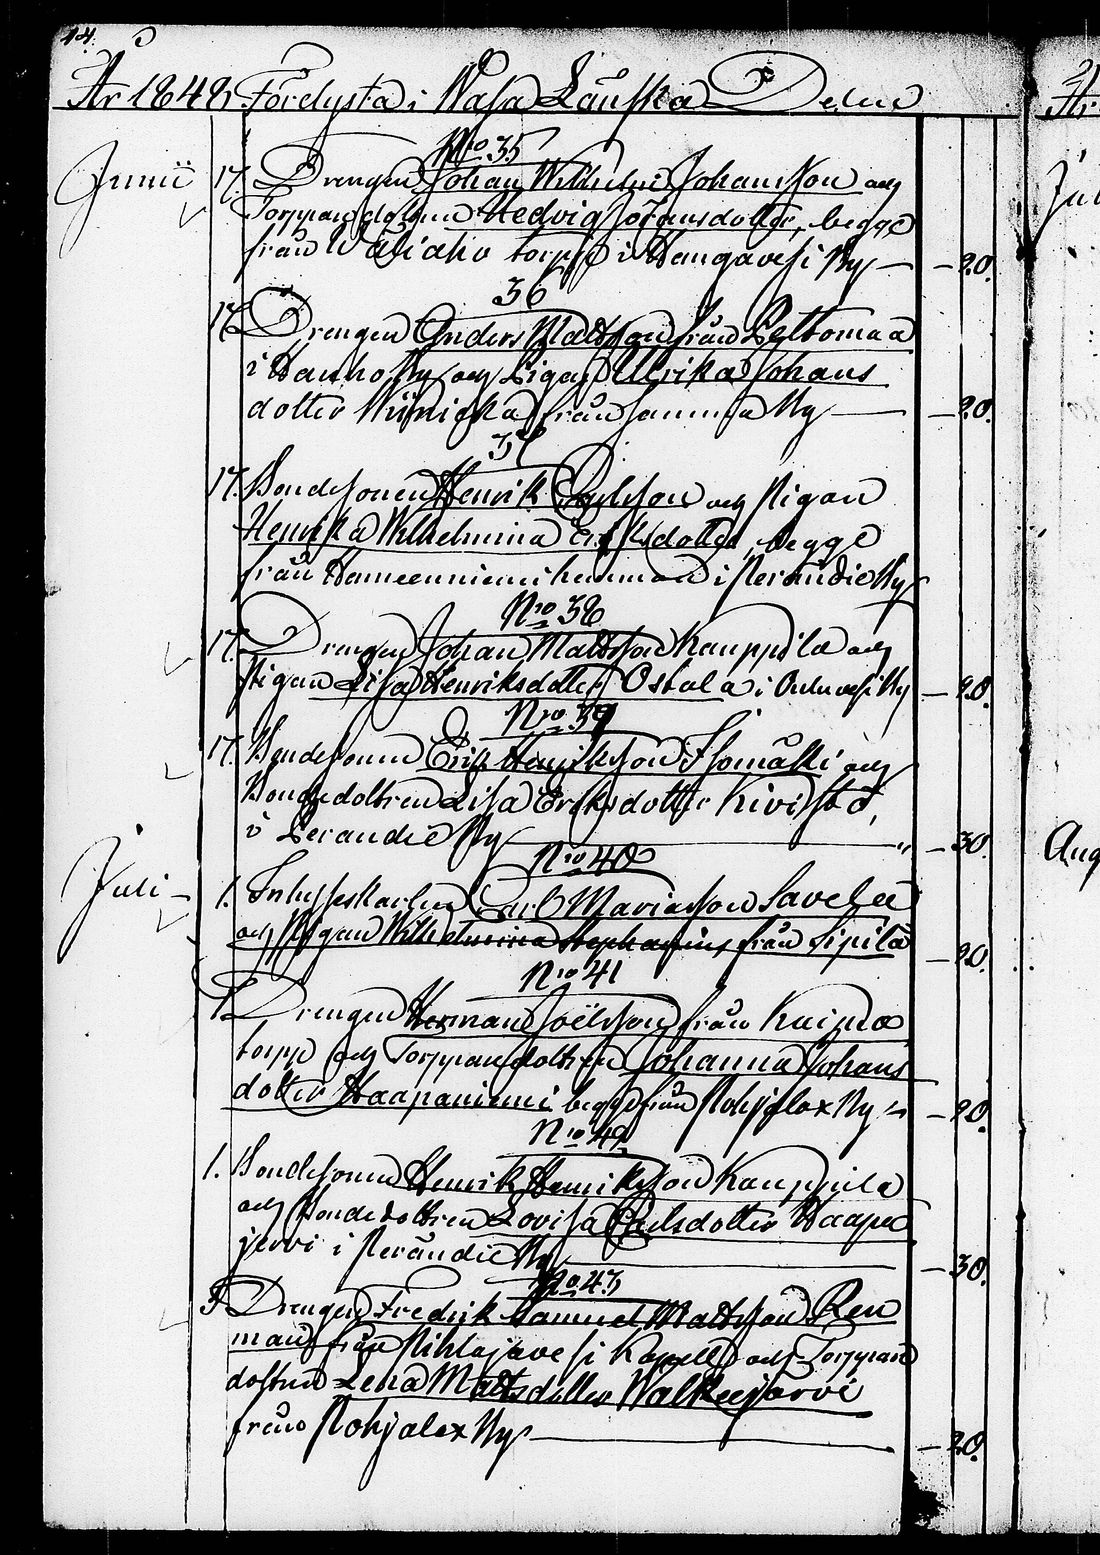 14.
År 1848, Förlysta i Wasa Länska Delen
N:ro 35
Junii 17. Drengen Johan Wilhelm Johansson och
Torppardottren Hedvig Johansdotter, begge
från Waliaho torpp i Hangavesi By — 20.
36
17. Drengen Anders Mattsson från Peltomaa
i Hanho By och Pigan Ulrika Johans
dotter från samma By — 20.
37
17. Bondesonen Henrik Carlsson och Pigan
Henrika Wilhelmina Eriksdotter, begge
från Hameenniemi hemman i Perändie By
N:ro 38
17. Drengen Johan Mattsson Kauppila och
Pigan Lisa Henriksdotter Ostola i Ouluvesi By — 20.
N:ro 39
17. Bondesonen Erik Henriksson Isomäki och
Bondedottren Lisa Eriksdotter Kivistö,
i Perändie By — 30.
N:ro 40
Juli 1. Inhyseskarlen Carl Mariasson Savela
och Pigan Wilhelmina Stephanius från Sipilä — 20.
N:ro 41
1. Drengen Herman Joëlsson från Knipla
torpp och Torppardottren Johanna Johans
dotter Haapaniemi begge från Pohjalax By — 20.
N:ro 42
1. Bondesonen Henrik Henriksson Kauppila
och Bondedottren Lovisa Carlsdotter Haapa
jervi i Perändie By — 30.
N:ro 43
Drengen Fredrik Samuel Mattsson Ren
man från Pihlajavesi Kapell och Torppare
dottren Lena Mattsdotter Walkeejärvi
från Pohjalax By — 20.
Aug